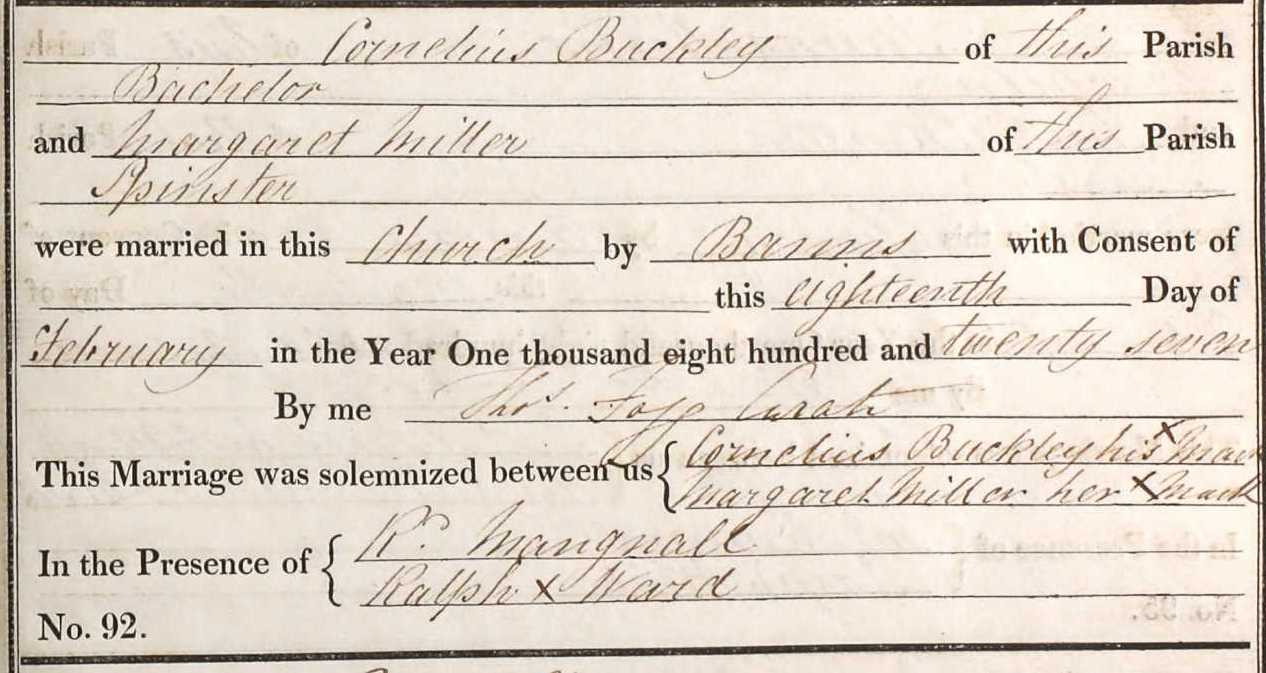 Cornelius Buckley of this Parish
Bachelor
and Margaret Miller of this Parish
Spinster
were married in this Church by Banns with Consent of
this eighteenth Day of
February in the Year One thousand eight hundred and twenty seven
By me Thos. Fogg Curate
This Marriage was solemnized between us { Cornelius Buckley his x Mark
Margaret Miller her x Mark
In the Presence of { R. Mangnall
Ralph x Ward
No. 92.